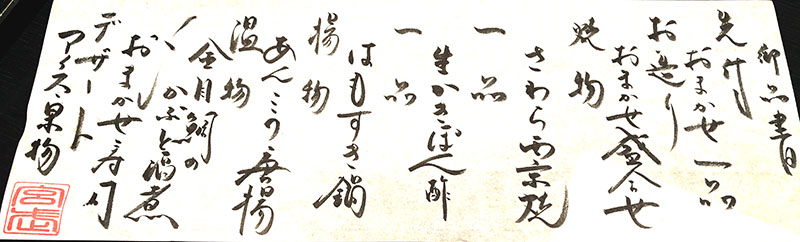 御品書
先付
おまかせ一品
お造り
おまかせ盛合せ
焼物
さわら西京焼
一品
生かきぽん酢
一品
はもすき鍋
揚物
あんこう唐揚
温物
金目鯛の
かぶと酒煮
〆
おまかせ寿司
デザート
アイス果物